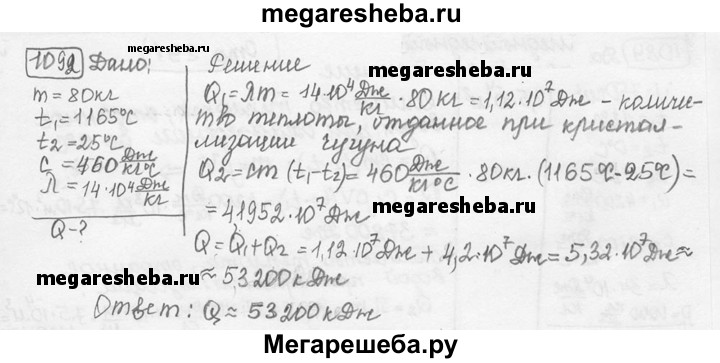 megaresheba.ru
1092 Дано:
megaresheba.ru
m = 80кг
t₁ = 1165°C
t₂ = 25°C
c = 460 Дж/кг°C
λ = 14·10⁴ Дж/кг
Q-?
Решение
megaresheba.ru
Q₁ = λm = 14·10⁴ Дж/кг · 80 кг = 1,12·10⁷ Дж - количе-
тво теплоты, отданное при кристал-
лизации чугуна
megaresheba.ru
Q₂ = cm (t₁-t₂) = 460 Дж/кг°C · 80кг. (1165°C-25°C) =
= 41952·10⁷ Дж
Q = Q₁ + Q₂ = 1,12·10⁷ Дж + 4,2·10⁷ Дж = 5,32·10⁷ Дж ≈
megaresheba.ru
≈ 53200 кДж
megaresheba.ru
Ответ: Q ≈ 53200 кДж
Мегарешеба.ру